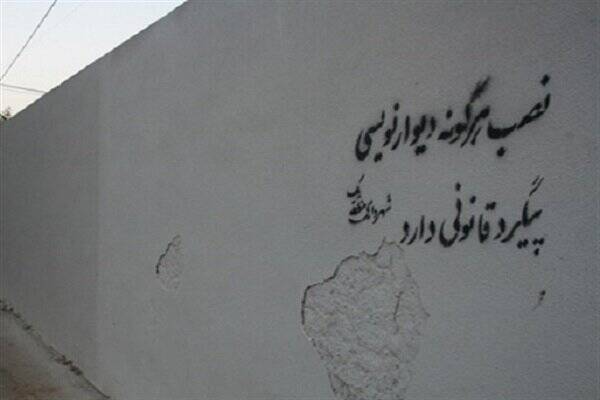 نصب هرگونه دیوارنویسی
پیگرد قانونی دارد
شهرداری منطقه یک